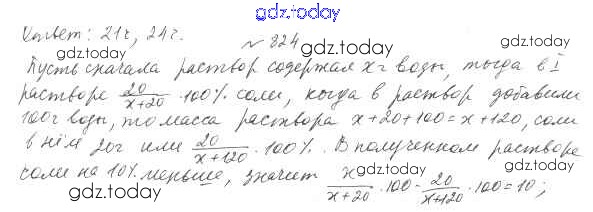 gdz.today
Ответ: 21г, 24г.
gdz.today
№ 824
gdz.today
Пусть сначала раствор содержал x г воды, тогда в I
растворе 20/x+20 · 100% соли, когда в раствор добавили
gdz.today
100г воды, то масса раствора x+20+100=x+120, соли
в нём 20г или 20/x+120 · 100%. В полученном растворе
gdz.today
соли на 10% меньше, значит x/x+20 · 100 - 20/x+120 · 100 = 10;
gdz.today
gdz.today